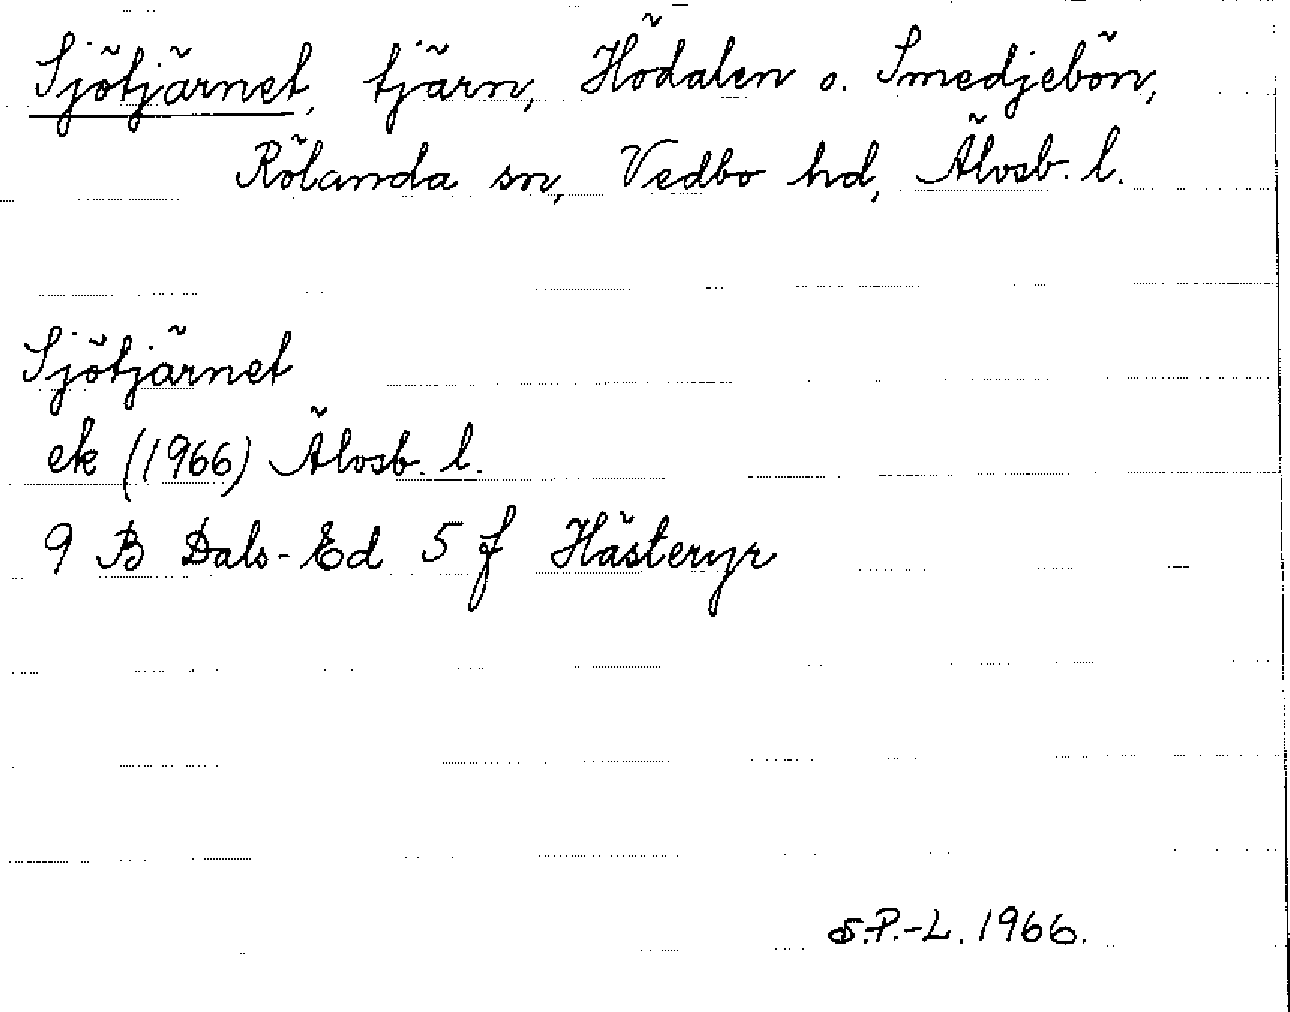 Sjötjärnet, tjärn, Hödalen o. Smedjebön,
Rölanda sn, Vedbo hd, Älvsb. l.
Sjötjärnet
ek (1966) Älvsb. l.
9 B Dals-Ed 5 f Hästeryr
S.P.-L. 1966.